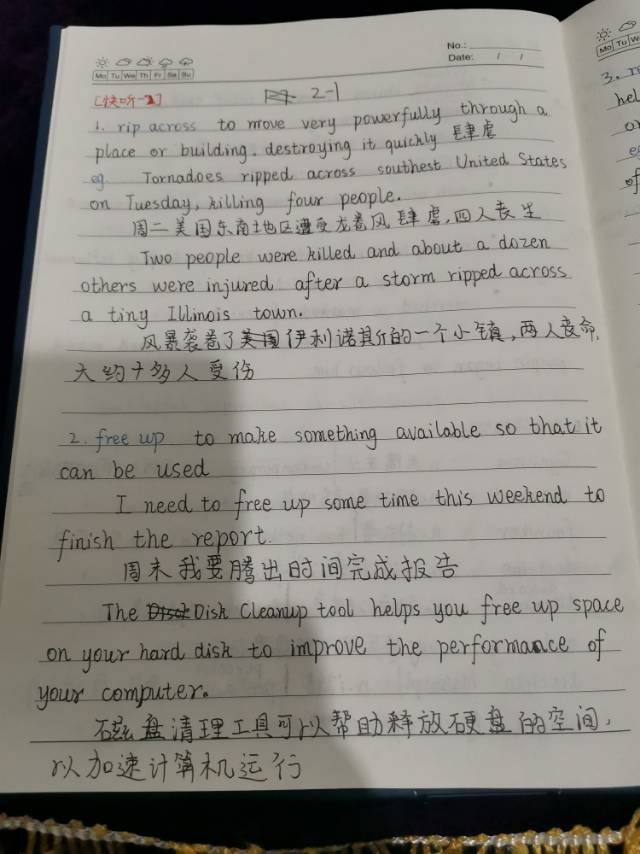 No.:
Date: / /
Mo Tu We Th Fr Sa Su
[快听-2]
2-1
1. rip across to move very powerfully through a
place or building. destroying it quickly 肆虐
eg Tornadoes ripped across southest United States
on Tuesday, killing four people.
周二美国东南部地区遭受龙卷风肆虐,四人丧生
Two people were killed and about a dozen
others were injured after a storm ripped across
a tiny Illinois town.
风暴袭卷了美国伊利诺斯的一个小镇,两人丧命,
大约十多人受伤
2. free up to make something available so that it
can be used
I need to free up some time this weekend to
finish the report.
周末我要腾出时间完成报告
The Disk Cleanup tool helps you free up space
on your hard disk to improve the performance of
your computer.
磁盘清理工具可以帮助释放硬盘的空间,
以加速计算机运行
3.
hel
or
eg
of
Mo Tu W